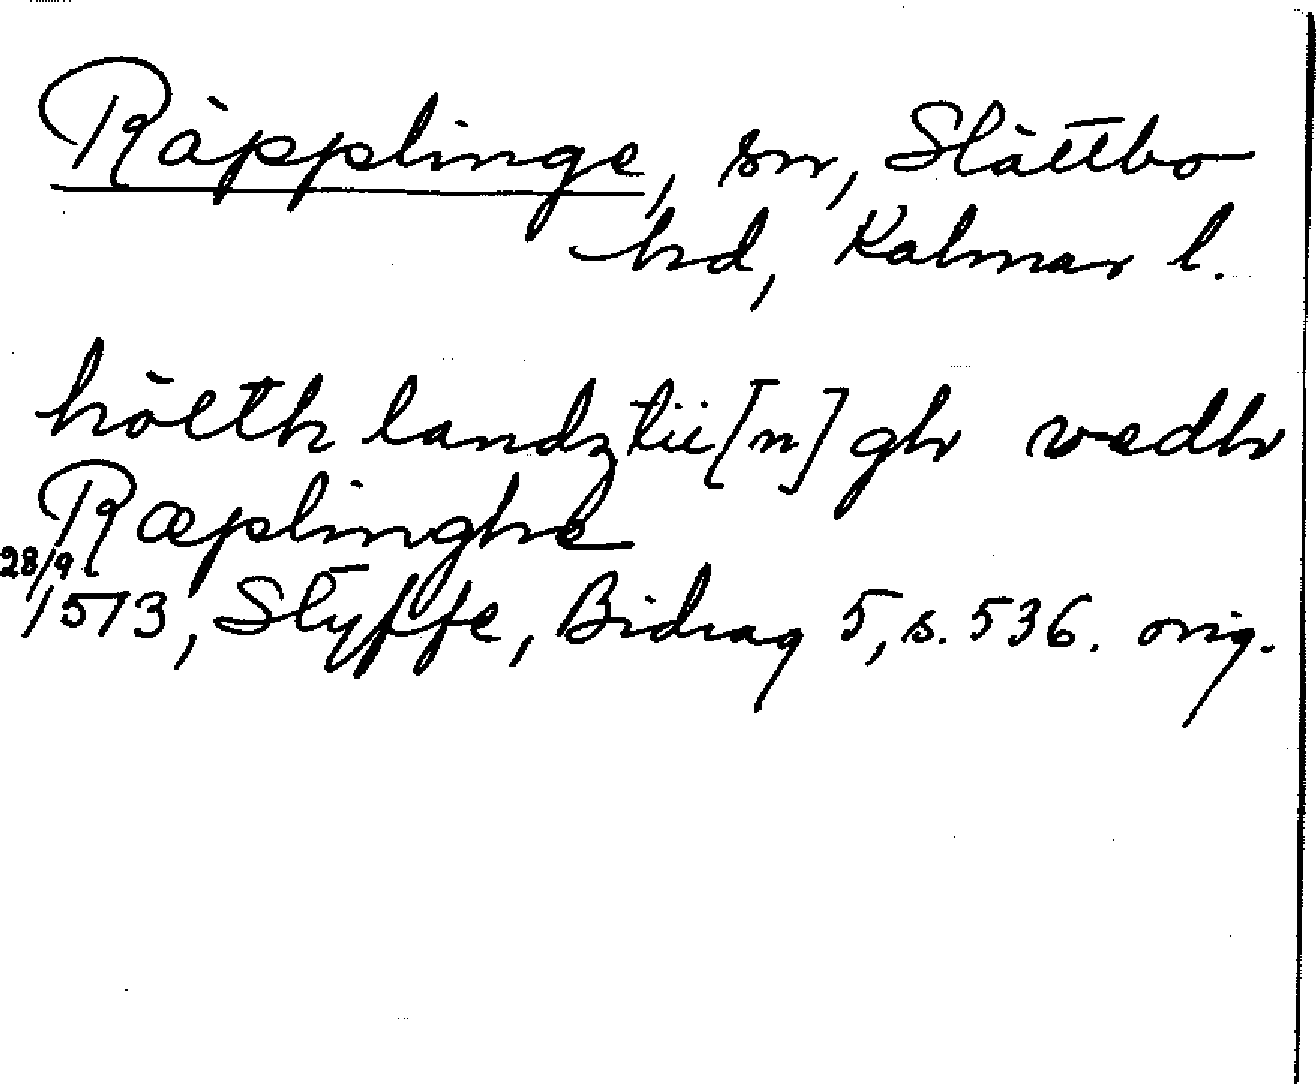 Räpplinge, sn, Slättbo
hd, Kalmar l.
hölth landztii[n]gh vedh
Ræplinghe
28/9
1513, Styffe, Bidrag 5, s. 536. orig.